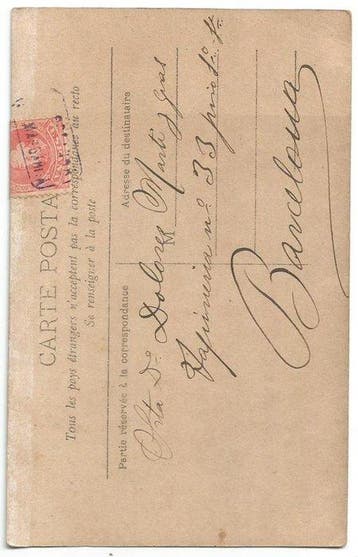 CARTE POSTALE
Tous les pays étrangers n'acceptent pas la correspondance au recto
Se renseigner à la poste
Partie réservée à la correspondance
Adresse du destinataire
M
Srta Dª Dolores Martí y
Tapineria nº 33
Barcelona